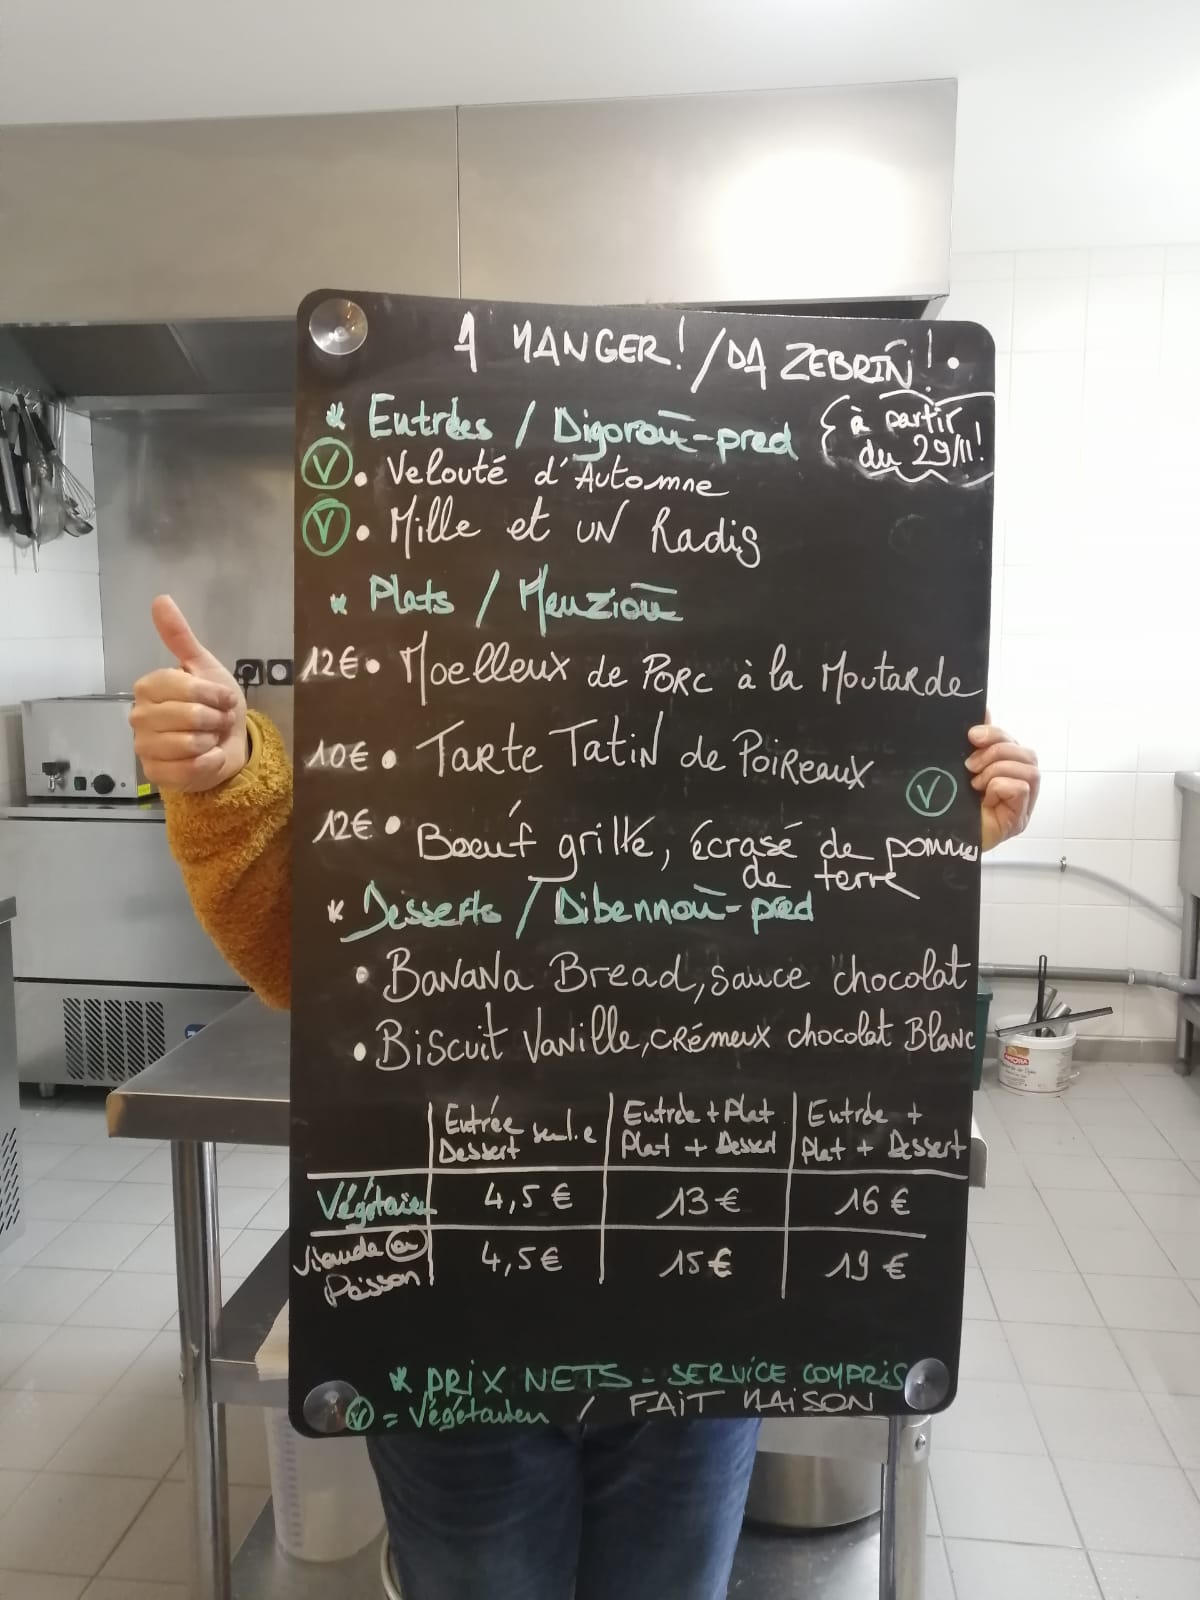 A MANGER! / DA ZEBRIÑ!
* Entrées / Digoroù-pred
à partir
du 29/11!
Ⓥ • Velouté d'Automne
Ⓥ • Mille et un Radis
* Plats / Meuzioù
12€ • Moelleux de Porc à la Moutarde
10€ • Tarte Tatin de Poireaux Ⓥ
12€ • Boeuf grillé, écrasé de pommes
de terre
* Desserts / Dibennoù-pred
• Banana Bread, sauce chocolat
• Biscuit Vanille, crémeux chocolat Blanc
Entrée seul.e
Dessert
Entrée + Plat
Plat + Dessert
Entrée +
Plat + Dessert
Végétarien 4,5€ 13€ 16€
Viande ou
Poisson 4,5€ 15€ 19€
* PRIX NETS - SERVICE COMPRIS
Ⓥ = Végétarien / FAIT MAISON